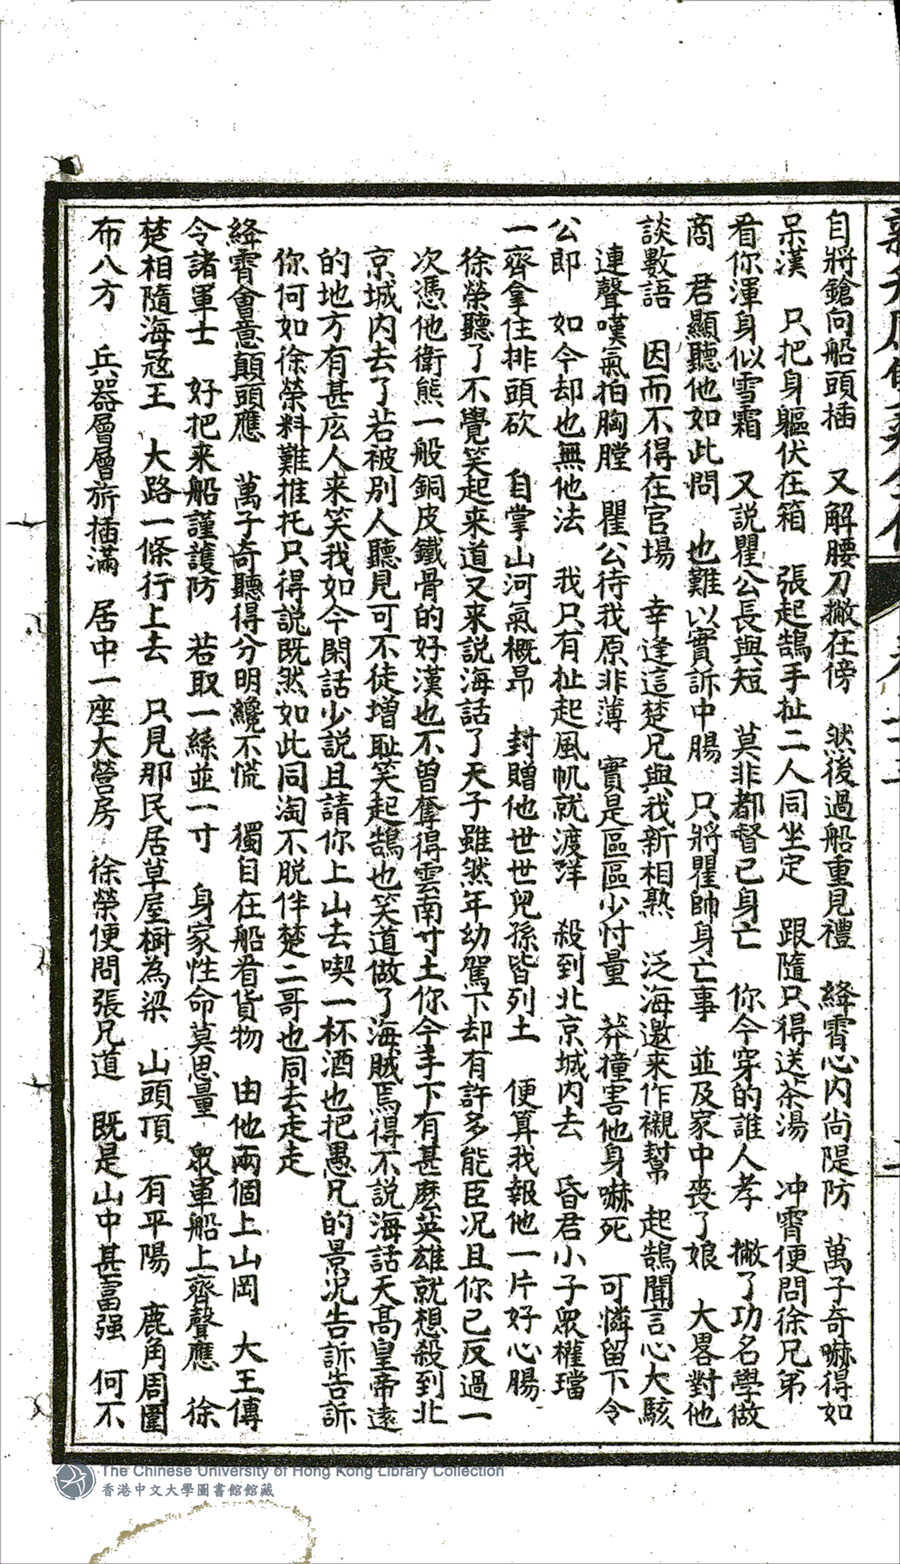 自將鎗向船頭插　又解腰刀撇在傍　然後過船重見禮　絳霄心內尚隄防　萬子奇嚇得如
呆漢　只把身軀伏在箱　張起鵠手扯二人同坐定　跟隨只得送茶湯　冲霄便問徐兄弟
看你渾身似雪霜　又說瞿公長與短　莫非都督已身亡　你今穿的誰人孝　撇了功名學做
商　君顯聽他如此問　也難以實訴中腸　只將瞿帥身亡事　並及家中喪了娘　大畧對他
談數語　因而不得在官場　幸逢這楚兄與我新相熟　泛海邀来作襯幫　起鵠聞言心大駭
連聲嘆氣拍胸膛　瞿公待我原非薄　實是區區少忖量　莽撞害他身嚇死　可憐留下令
公郎　如今却也無他法　我只有扯起風帆就渡洋　殺到北京城内去　昏君小子衆權璫
一齊拿住排頭砍　自掌山河氣概昻　封贈他世世兒孫皆列土　便算我報他一片好心腸
徐榮聽了不覺笑起来道又来說海話了天子雖然年幼駕下却有許多能臣况且你已反過一
次憑他衛熊一般銅皮鐵骨的好漢也不曾奪得雲南寸土你今手下有甚麽英雄就想殺到北
京城内去了若被别人聽見可不徒增恥笑起鵠也笑道做了海賊焉得不説海話天高皇帝遠
的地方有甚庅人来笑我如今閑話少説且請你上山去喫一杯酒也把愚兄的景况告訴告訴
你何如徐榮料難推托只得説既然如此同淘不脱伴楚二哥也同去走走
絳霄會意顛頭應　萬子奇聽得分明纔不慌　獨自在船看貨物　由他兩個上山岡　大王傳
令諸軍士　好把来船謹護防　若取一絲並一寸　身家性命莫思量　衆軍船上齊聲應　徐
楚相隨海冦王　大路一條行上去　只見那民居草屋樹為梁　山頭頂　有平陽　鹿角周圍
布八方　兵器層層旂插滿　居中一座大營房　徐榮便問張兄道　既是山中甚富强　何不
The Chinese University of Hong Kong Library Collection
香港中文大學圖書館館藏